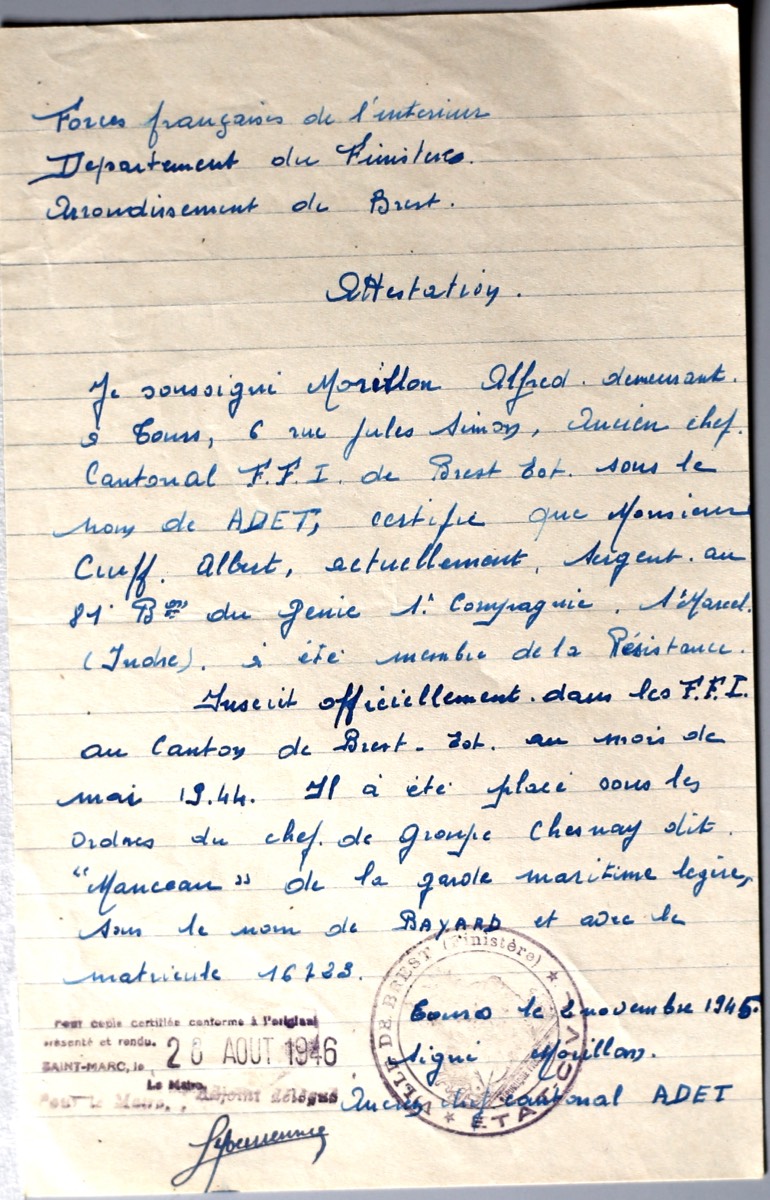 Forces françaises de l'interieur
Departement du Finistere.
Arrondissement de Brest.
Attestation.
Je soussigné Morillon Alfred. demeurant.
à Tours, 6 rue Jules Simon, Ancien chef.
Cantonal F.F.I. de Brest Est. sous le
nom de ADET, certifie que Monsieur
Cueff. Albert, actuellement, Sergent. au
81° Bon du Genie 1° Compagnie. St Marcel.
(Indre). à été membre de la Résistance.
Inscrit officiellement. dans les F.F.I.
au Canton de Brest-Est. au mois de
mai 19.44. Il à été placé sous les
ordres du chef. de groupe Chesnay dit.
"Manceau" de la garde maritime legère,
sous le nom de BAYARD et avec le
matricule 16723.
Tours le 2 novembre 1945.
Signé Morillon.
Ancien chef cantonal ADET
Pour copie certifiée conforme à l'original
présenté et rendu.
SAINT-MARC, le 26 AOUT 1946
Le Maire,
Pour le Maire, Adjoint délégué
VILLE DE BREST (Finistère)
★ ÉTAT CIVIL ★